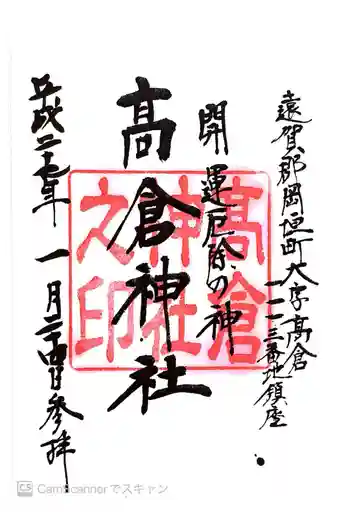 遠賀郡岡垣町大字高倉
一一一三番地鎮座
開運厄除の神
高倉神社
平成二十七年 一月二十四日参拝
高倉
神社
之印
CS CamScannerでスキャン